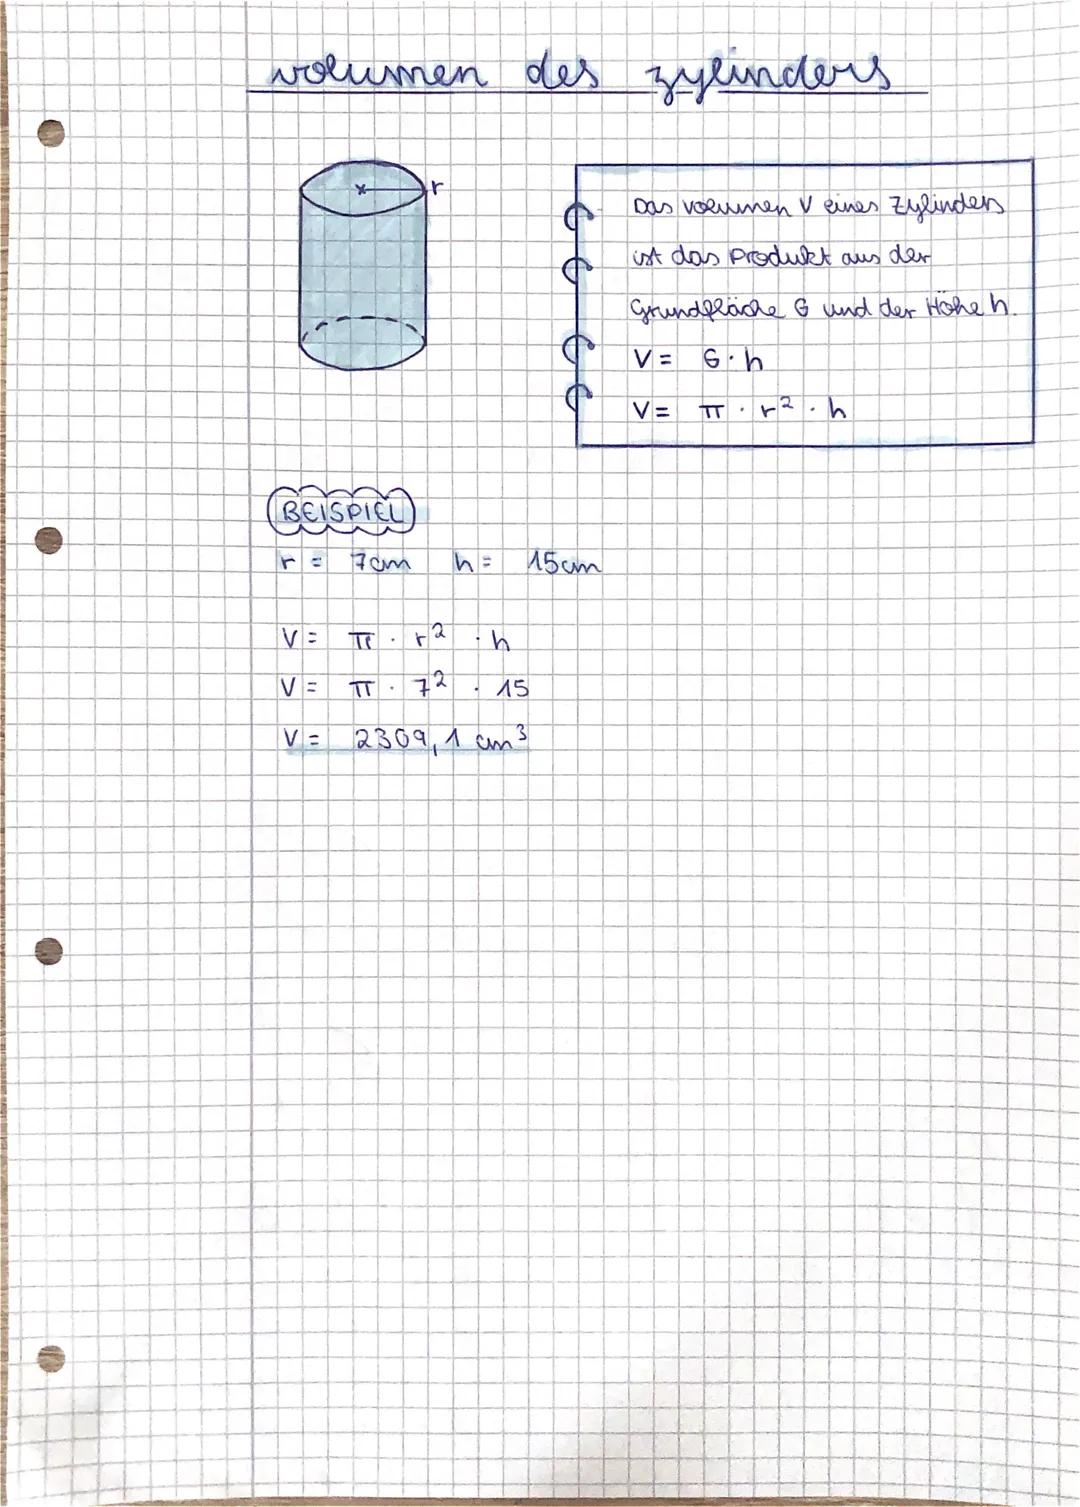 volumen des zylinders
r
Das Volumen V eines Zylinders
ist das Produkt aus der
Grundfläche G und der Höhe h.
V = G · h
V = π · r² · h
BEISPIEL
r = 7cm h = 15cm
V = π · r² · h
V = π · 7² · 15
V = 2309,1 cm³